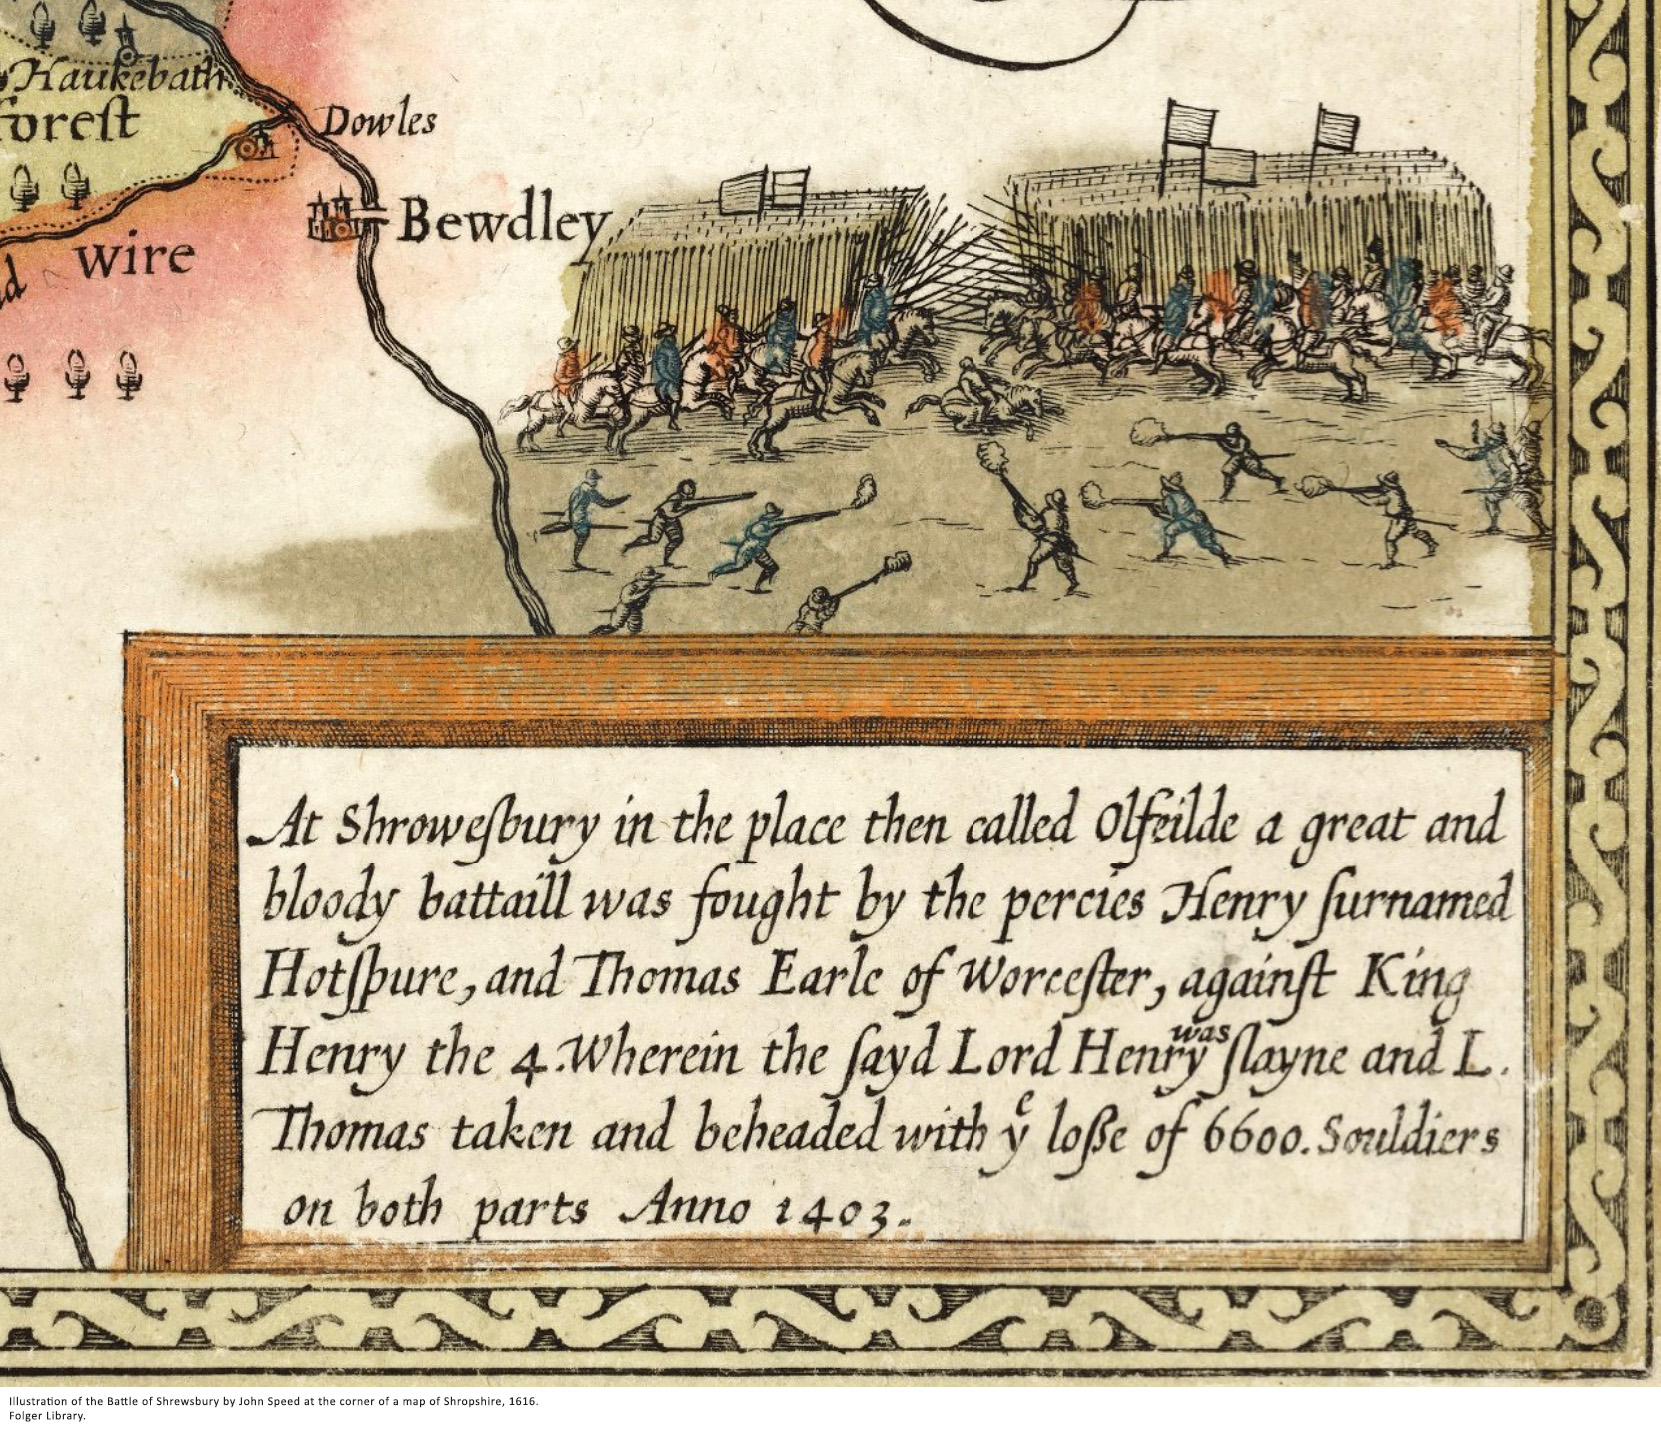 Haukebath
forest
Dowles
Bewdley
wire
At Shroweſbury in the place then called Olfeilde a great and
bloody battaill was fought by the percies Henry ſurnamed
Hotſpure, and Thomas Earle of Worceſter, againſt King
Henry the 4. Wherein the ſayd Lord Henry was ſlayne and L.
Thomas taken and beheaded with yͤ loße of 6600. Souldiers
on both parts Anno 1403.
Illustration of the Battle of Shrewsbury by John Speed at the corner of a map of Shropshire, 1616.
Folger Library.